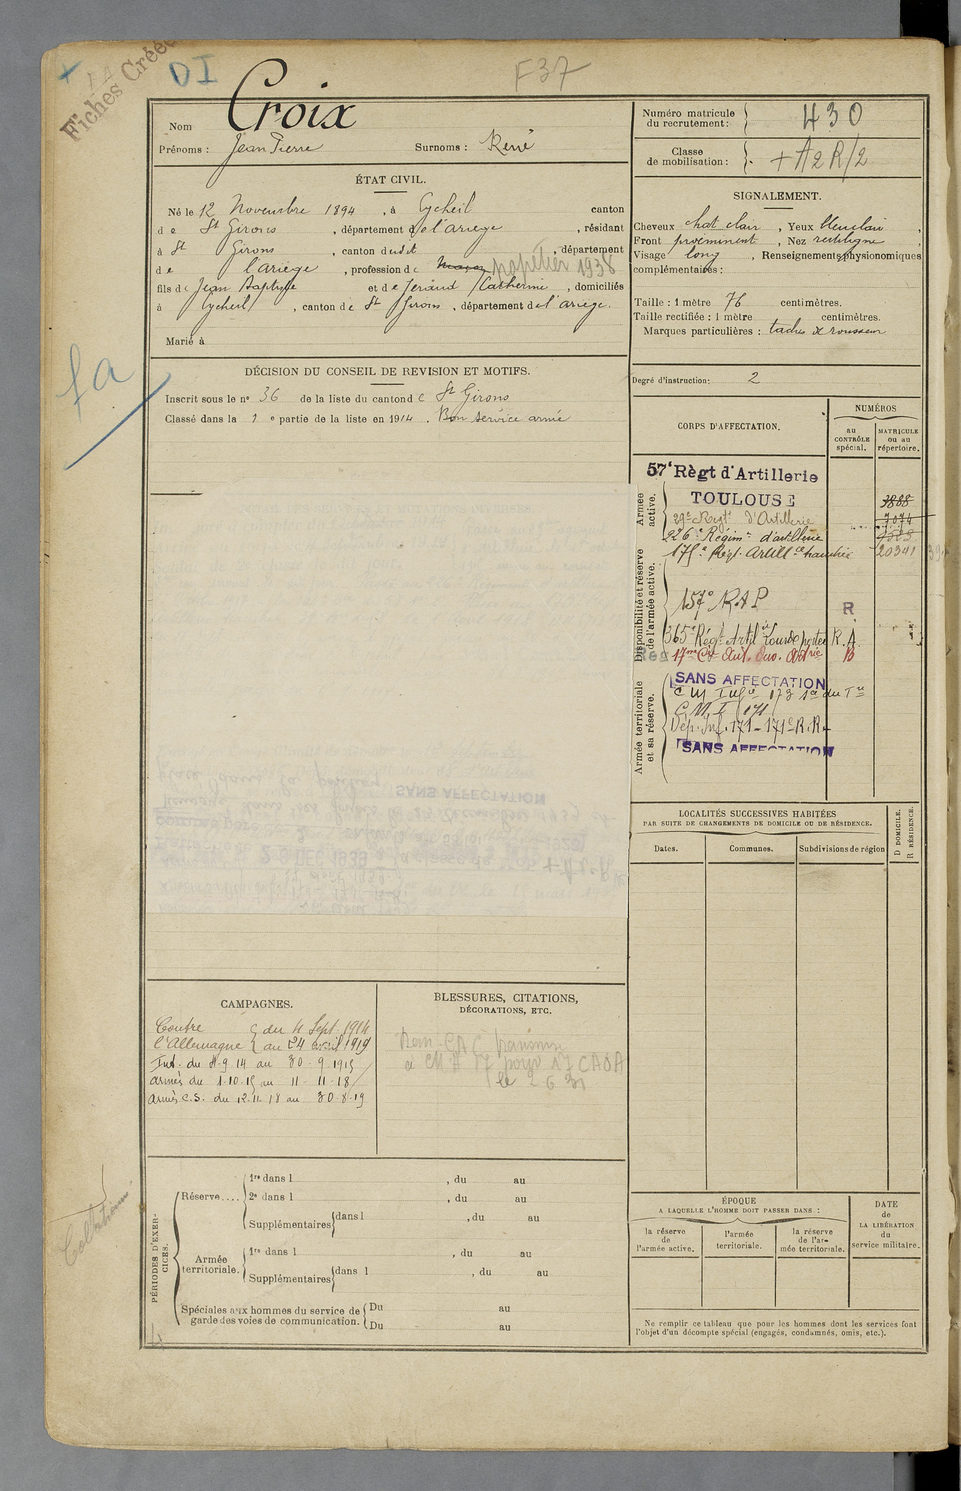 Fiches Créées
DI
F37
Nom Croix
Prénoms : Jean Pierre Surnoms : René
Numéro matricule du recrutement : 430
Classe de mobilisation : + A2R/2
ÉTAT CIVIL.
Né le 12 Novembre 1894, à Eycheil canton
de St Girons, département de l'ariege, résidant
à St Girons, canton dudit, département
de l'ariege, profession de maçon papetier 1938
fils de Jean Baptiste et de Jerand Catherine, domiciliés
à Eycheil, canton de St Girons, département de l'ariege.
Marié à
SIGNALEMENT.
Cheveux chat clair, Yeux bleu clair,
Front proeminent, Nez rectiligne,
Visage long, Renseignements physionomiques
complémentaires :
Taille : 1 mètre 76 centimètres.
Taille rectifiée : 1 mètre centimètres.
Marques particulières : taches de rousseur
Degré d'instruction : 2
fa
DÉCISION DU CONSEIL DE REVISION ET MOTIFS.
Inscrit sous le n° 36 de la liste du canton de St Girons
Classé dans la 1e partie de la liste en 1914. Bon service armé
CORPS D'AFFECTATION.
NUMÉROS
au CONTRÔLE spécial.
MATRICULE ou au répertoire.
Armée active.
57e Règt d'Artillerie
TOULOUSE 3888
29e Regt d'Artillerie 7074
226e Régimt d'artillerie
175e Régt Artill ce tranchée 20341
Disponibilité et réserve de l'armée active.
157e R.A.P R
365e Régt Artil rie Lourde portée R.A.
17me Cie Aut. Ouv. Artrie B
Armée territoriale et sa réserve.
SANS AFFECTATION
C M Infie 173
C. M. I. 171
Dép. Inf. 171 - 171e R.R.
SANS AFFECTATION
LOCALITÉS SUCCESSIVES HABITÉES
PAR SUITE DE CHANGEMENTS DE DOMICILE OU DE RÉSIDENCE.
Dates. Communes. Subdivisions de région
D DOMICILE.
R RÉSIDENCE.
SANS AFFECTATION
CAMPAGNES.
Contre du 4 Sept. 1914
l'Allemagne au 24 avril 1919
Int. du 4 9 14 au 30 . 9 . 1915
armés du 1.10.15 au 11-11-18
Armés C.S. du 12.11.18 au 30.8.19
BLESSURES, CITATIONS,
DÉCORATIONS, ETC.
le 2 6 31
PÉRIODES D'EXERCICES.
Réserve....
1re dans l , du au
2e dans l , du au
Supplémentaires dans l , du au
Armée territoriale.
1re dans l , du au
Supplémentaires dans l , du au
Spéciales aux hommes du service de garde des voies de communication.
Du au
Du au
ÉPOQUE
A LAQUELLE L'HOMME DOIT PASSER DANS :
la réserve de l'armée active.
l'armée territoriale.
la réserve de l'armée territoriale.
DATE de LA LIBÉRATION du service militaire.
Ne remplir ce tableau que pour les hommes dont les services font
l'objet d'un décompte spécial (engagés, condamnés, omis, etc.).